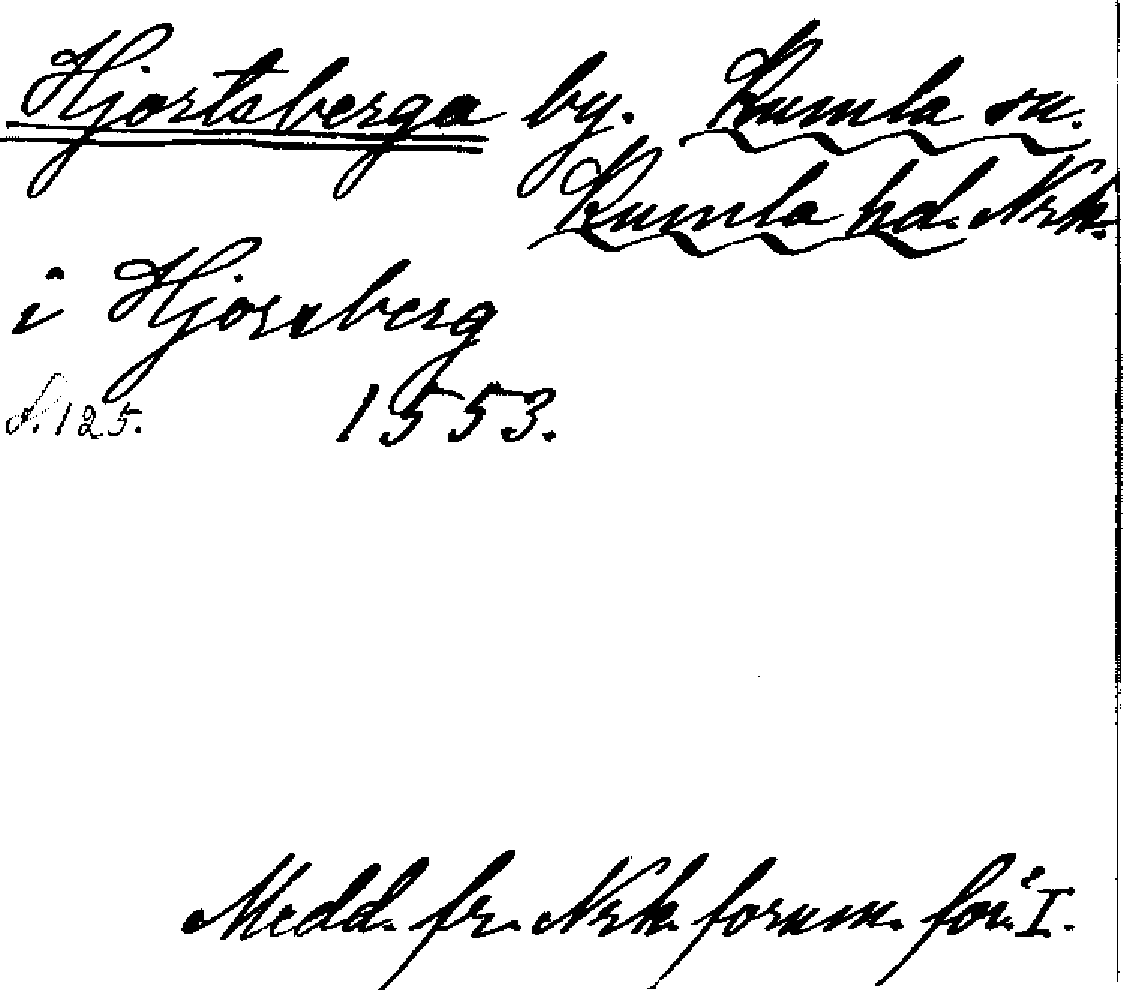 Hjortsberga by. Kumla sn.
Kumla hd. Nrk.
i Hjorsberg
s. 125. 1553.
Medd. fr. Nrk. fornm. för. I.